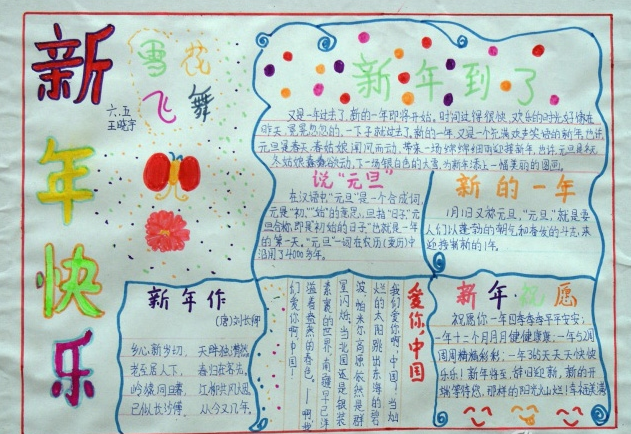 新
年
快
乐
雪花
飞舞
六.五
王晓宇
新年到了
又是一年过去了,新的一年即将开始。时间过得很快,欢乐的时光好像在
昨天,匆匆忽忽的,一下子就过去了。新的一年,又是一个充满欢声笑语的新年,也许
元旦是春天,春姑娘闻风而动,带来一场绵绵细雨迎接新年,也许,元旦是冬天,
冬姑娘蠢蠢欲动,下一场银白色的大雪,为新年添上一幅美丽的图画。
说“元旦”
在汉语中“元旦”是一个合成词,
元是“初”“始”的意思,旦指“日子”元
旦合称,即是“初始的日子”也就是一年
的第一天。“元旦”一词在农历(夏历)中
沿用了4000多年。
新的一年
1月1日又称元旦,“元旦”就是要
人们以蓬勃的朝气和奋发的斗志,来
迎接崭新的1年。
新年作
(唐)刘长卿
乡心新岁切, 天畔独潸然。
老至居人下, 春归在客先。
岭猿同旦暮, 江柳共风烟。
已似长沙傅, 从今又几年。
爱你,中国
我们爱你啊,中国!当灿
烂的太阳跳出东海的碧
波,帕米尔高原依然是群
星闪烁,当北国还是银装
素裹的世界,南疆早已洋
溢着盎然的春色。——啊,我
们爱你啊,中国!
新年祝愿
祝愿你一年四季季季平平安安;
一年十二个月月月健健康康;一年52周
周周精精彩彩;一年365天天天快快
乐乐!新年将至,辞旧迎新,新的开
端等待您,那样的阳光灿烂!幸福美满